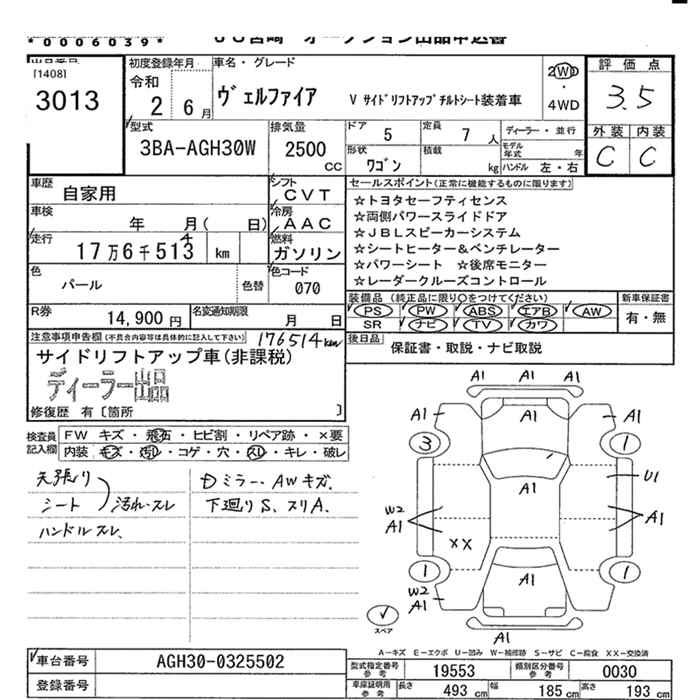 *0006039*
[1408]
3013
初度登録年月
令和
2 6月
車名・グレード
ヴェルファイア
V サイドリフトアップチルトシート装着車
2WD
・
4WD
評価点
3.5
外装 内装
C C
型式
3BA-AGH30W
排気量
2500
cc
ドア 5
定員 7 人
ディーラー・並行
形状 ワゴン
積載 kg
モデル年式 年
ハンドル 左・右
車歴 自家用
シフト CVT
車検 年 月( 日)
冷房 AAC
走行 17万6千513 km
4
燃料 ガソリン
色 パール
色替
色コード 070
R券 14,900円
名変通知期限 月 日
セールスポイント(正常に機能するものに限ります)
☆トヨタセーフティセンス
☆両側パワースライドドア
☆JBLスピーカーシステム
☆シートヒーター&ベンチレーター
☆パワーシート ☆後席モニター
☆レーダークルーズコントロール
装備品(純正品に限り○をつけてください)
PS PW ABS エアB AW
SR ナビ TV カワ
新車保証書
有・無
後日品 保証書・取説・ナビ取説
注意事項申告欄(不具合内容等は具体的に記入して下さい)
176514km
サイドリフトアップ車(非課税)
ディーラー出品
修復歴 有〔箇所 〕
検査員記入欄
FW キズ・飛石・ヒビ割・リペア跡・×要
内装 キズ・汚れ・コゲ・穴・スレ・キレ・破レ
天張り
シート
汚れ・スレ
ハンドルスレ
Dミラー・AWキズ.
下廻りS、スリA.
A1 A1 A1
A1 A1
3 1
A1
U1
W2
A1
A1
XX
1 1
A1
W2
A1
A1
スペア
A-キズ E-エクボ U-凹み W-補修跡 S-サビ C-腐食 XX-交換済
車台番号 AGH30-0325502
登録番号
型式指定番号 参考 19553
類別区分番号 参考 0030
車庫証明用 参考
長さ 493 cm
幅 185 cm
高さ 193 cm